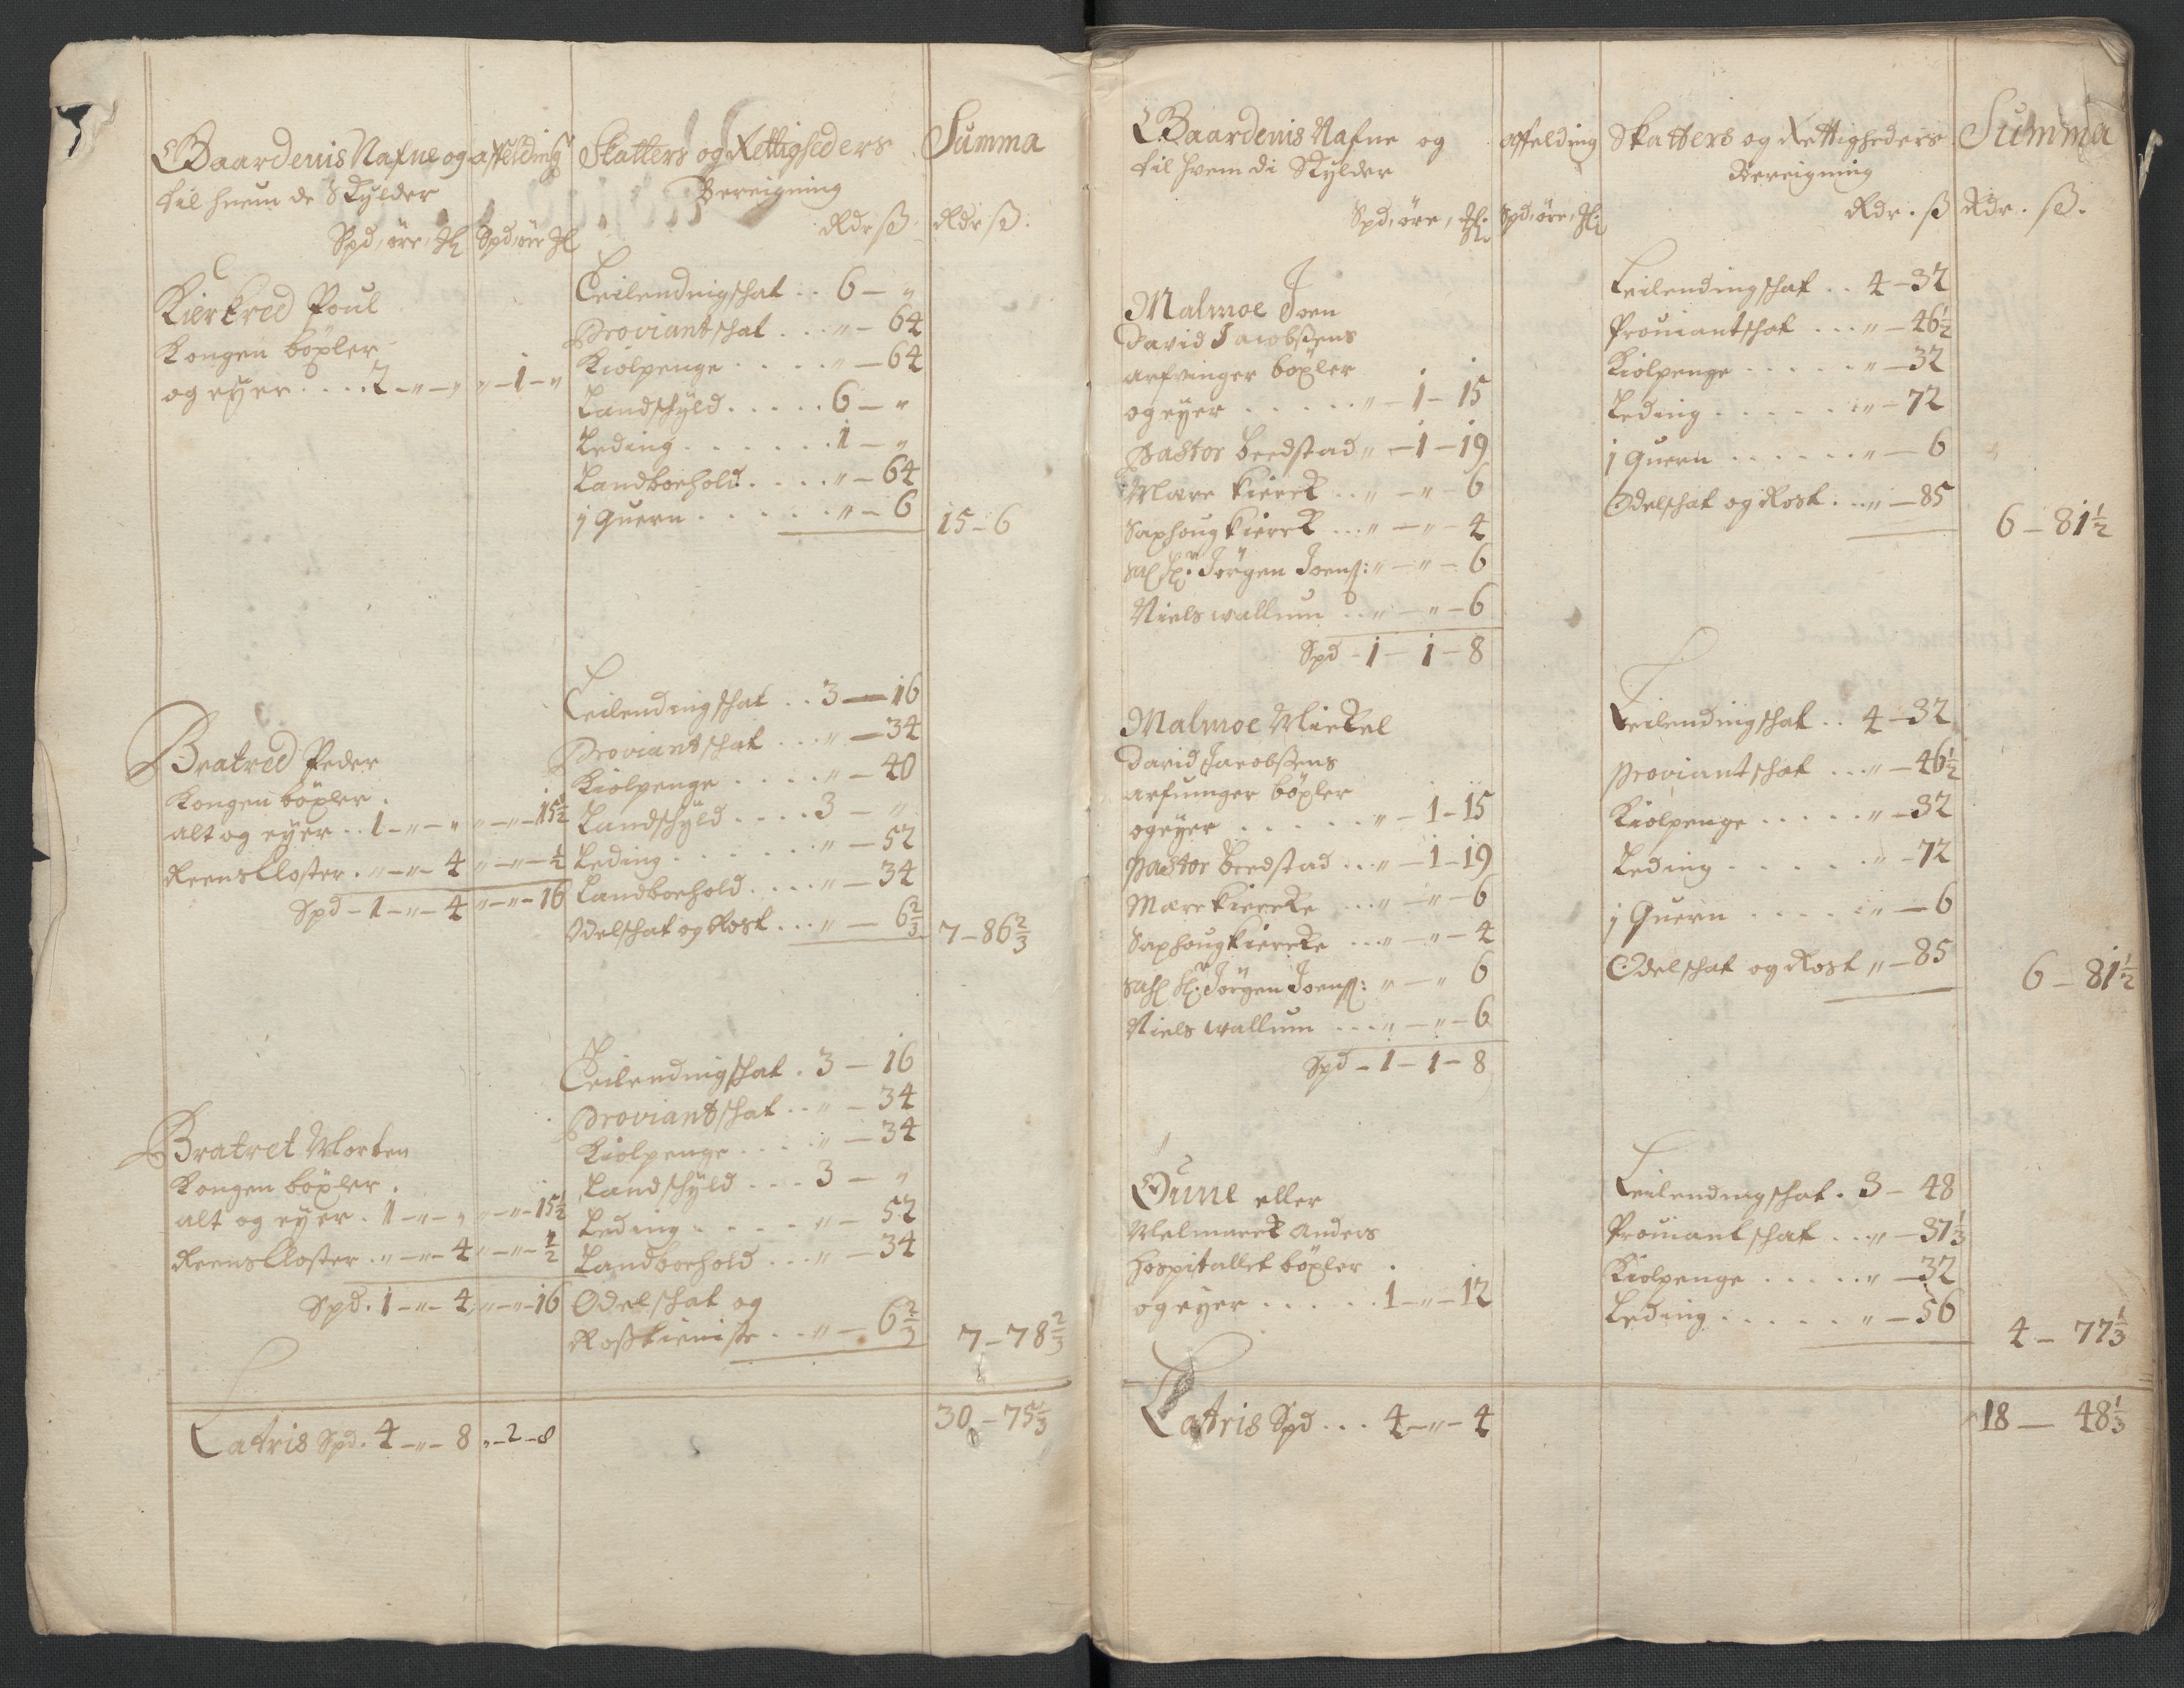 Gaardenis Nafne og
til huem de Skylder
Spd, öre, Ml
affelding
Spd, öre Ml
Skatters og Rettigheders
Bereigning
Rdr ß
Summa
Rdr ß
Kierkred Poul
Kongen böxler
og eyer .... 2 – " – " " – 1 – "
Leilendingschat .. 6 – "
Proviantschat ... " – 64
Kiolpenge ..... " – 64
Landschyld ..... 6 – "
Leding ...... 1 – "
Landboehold .... " – 64
j Quern ..... " – 6
15 – 6
Bratred Peder
Kongen böxler
alt og eyer .. 1 – " – " " – " – 15½
Reens Closter . " – " – 4 " – " – ½
Spd – 1 – " – 4 " – " – 16
Leilendingschat .. 3 – 16
Proviantschat ... " – 34
Kiolpenge .... " – 40
Landschyld .... 3 – "
Leding ...... " – 52
Landboehold .... " – 34
Odelschat og Rost ... " – 6⅔
7 – 86⅔
Bratret Morten
Kongen böxler
alt og eyer . 1 – " – " " – " – 15½
Reens Closter .. " – " – 4 " – " – ½
Spd. 1 – " – 4 " – " – 16
Leilendingschat . 3 – 16
Proviantschat .. " – 34
Kiolpenge ... " – 34
Landschyld ... 3 – "
Leding ..... " – 52
Landboehold ... " – 34
Odelschat og
Rostieniste .. " – 6⅔
7 – 78⅔
Latris Spd. 4 – " – 8 " – 2 – 8
30 – 75⅓
Gaardenis Nafne og
til hvem di Skylder
Spd, öre, Ml.
affelding
Spd, öre, Ml.
Skatters og Rettigheders
Bereigning
Rdr. ß
Summa
Rdr. ß.
Malmoe Joen
David Jacobsens
arfvinger böxler
og eyer ..... " – 1 – 15
Pastor Beedstad " – 1 – 19
Mære Kierck .. " – " – 6
Saxhoug Kierck ... " – " – 4
Sal Hr. Jörgen Joenß: " – " – 6
Niels wallum .. " – " – 6
Spd – 1 – 1 – 8
Leilendingschat .. 4 – 32
Prouiantschat ... " – 46½
Kiolpenge ..... " – 32
Leding ..... " – 72
j Quern ...... " – 6
Odelschat og Rost ... " – 85
6 – 81½
Malmoe Mickel
David Jacobsens
arfuinger böxler
og eyer ..... " – 1 – 15
Pastor Beedstad ... " – 1 – 19
Mære Kiercke ... " – " – 6
Saxhoug Kiercke ... " – " – 4
Sahl Hr. Jörgen Joenß: " – " 6
Niels wallum ... " – " – 6
Spd – 1 – 1 – 8
Leilendingschat .. 4 – 32
Proviantschat ... " – 46½
Kiolpenge ..... " – 32
Leding ..... " – 72
j Quern .... " – 6
Odelschat og Rost " – 85
6 – 81½
Oune eller
Melmarck Anders
Hospitallet böxler
og eyer ..... 1 – " – 12
Leilendingschat . 3 – 48
Prouiantschat ... " – 37⅓
Kiolpenge ..... " – 32
Leding ..... " – 56
4 – 77⅓
Latris Spd ... 4 – " – 4
18 – 48⅓